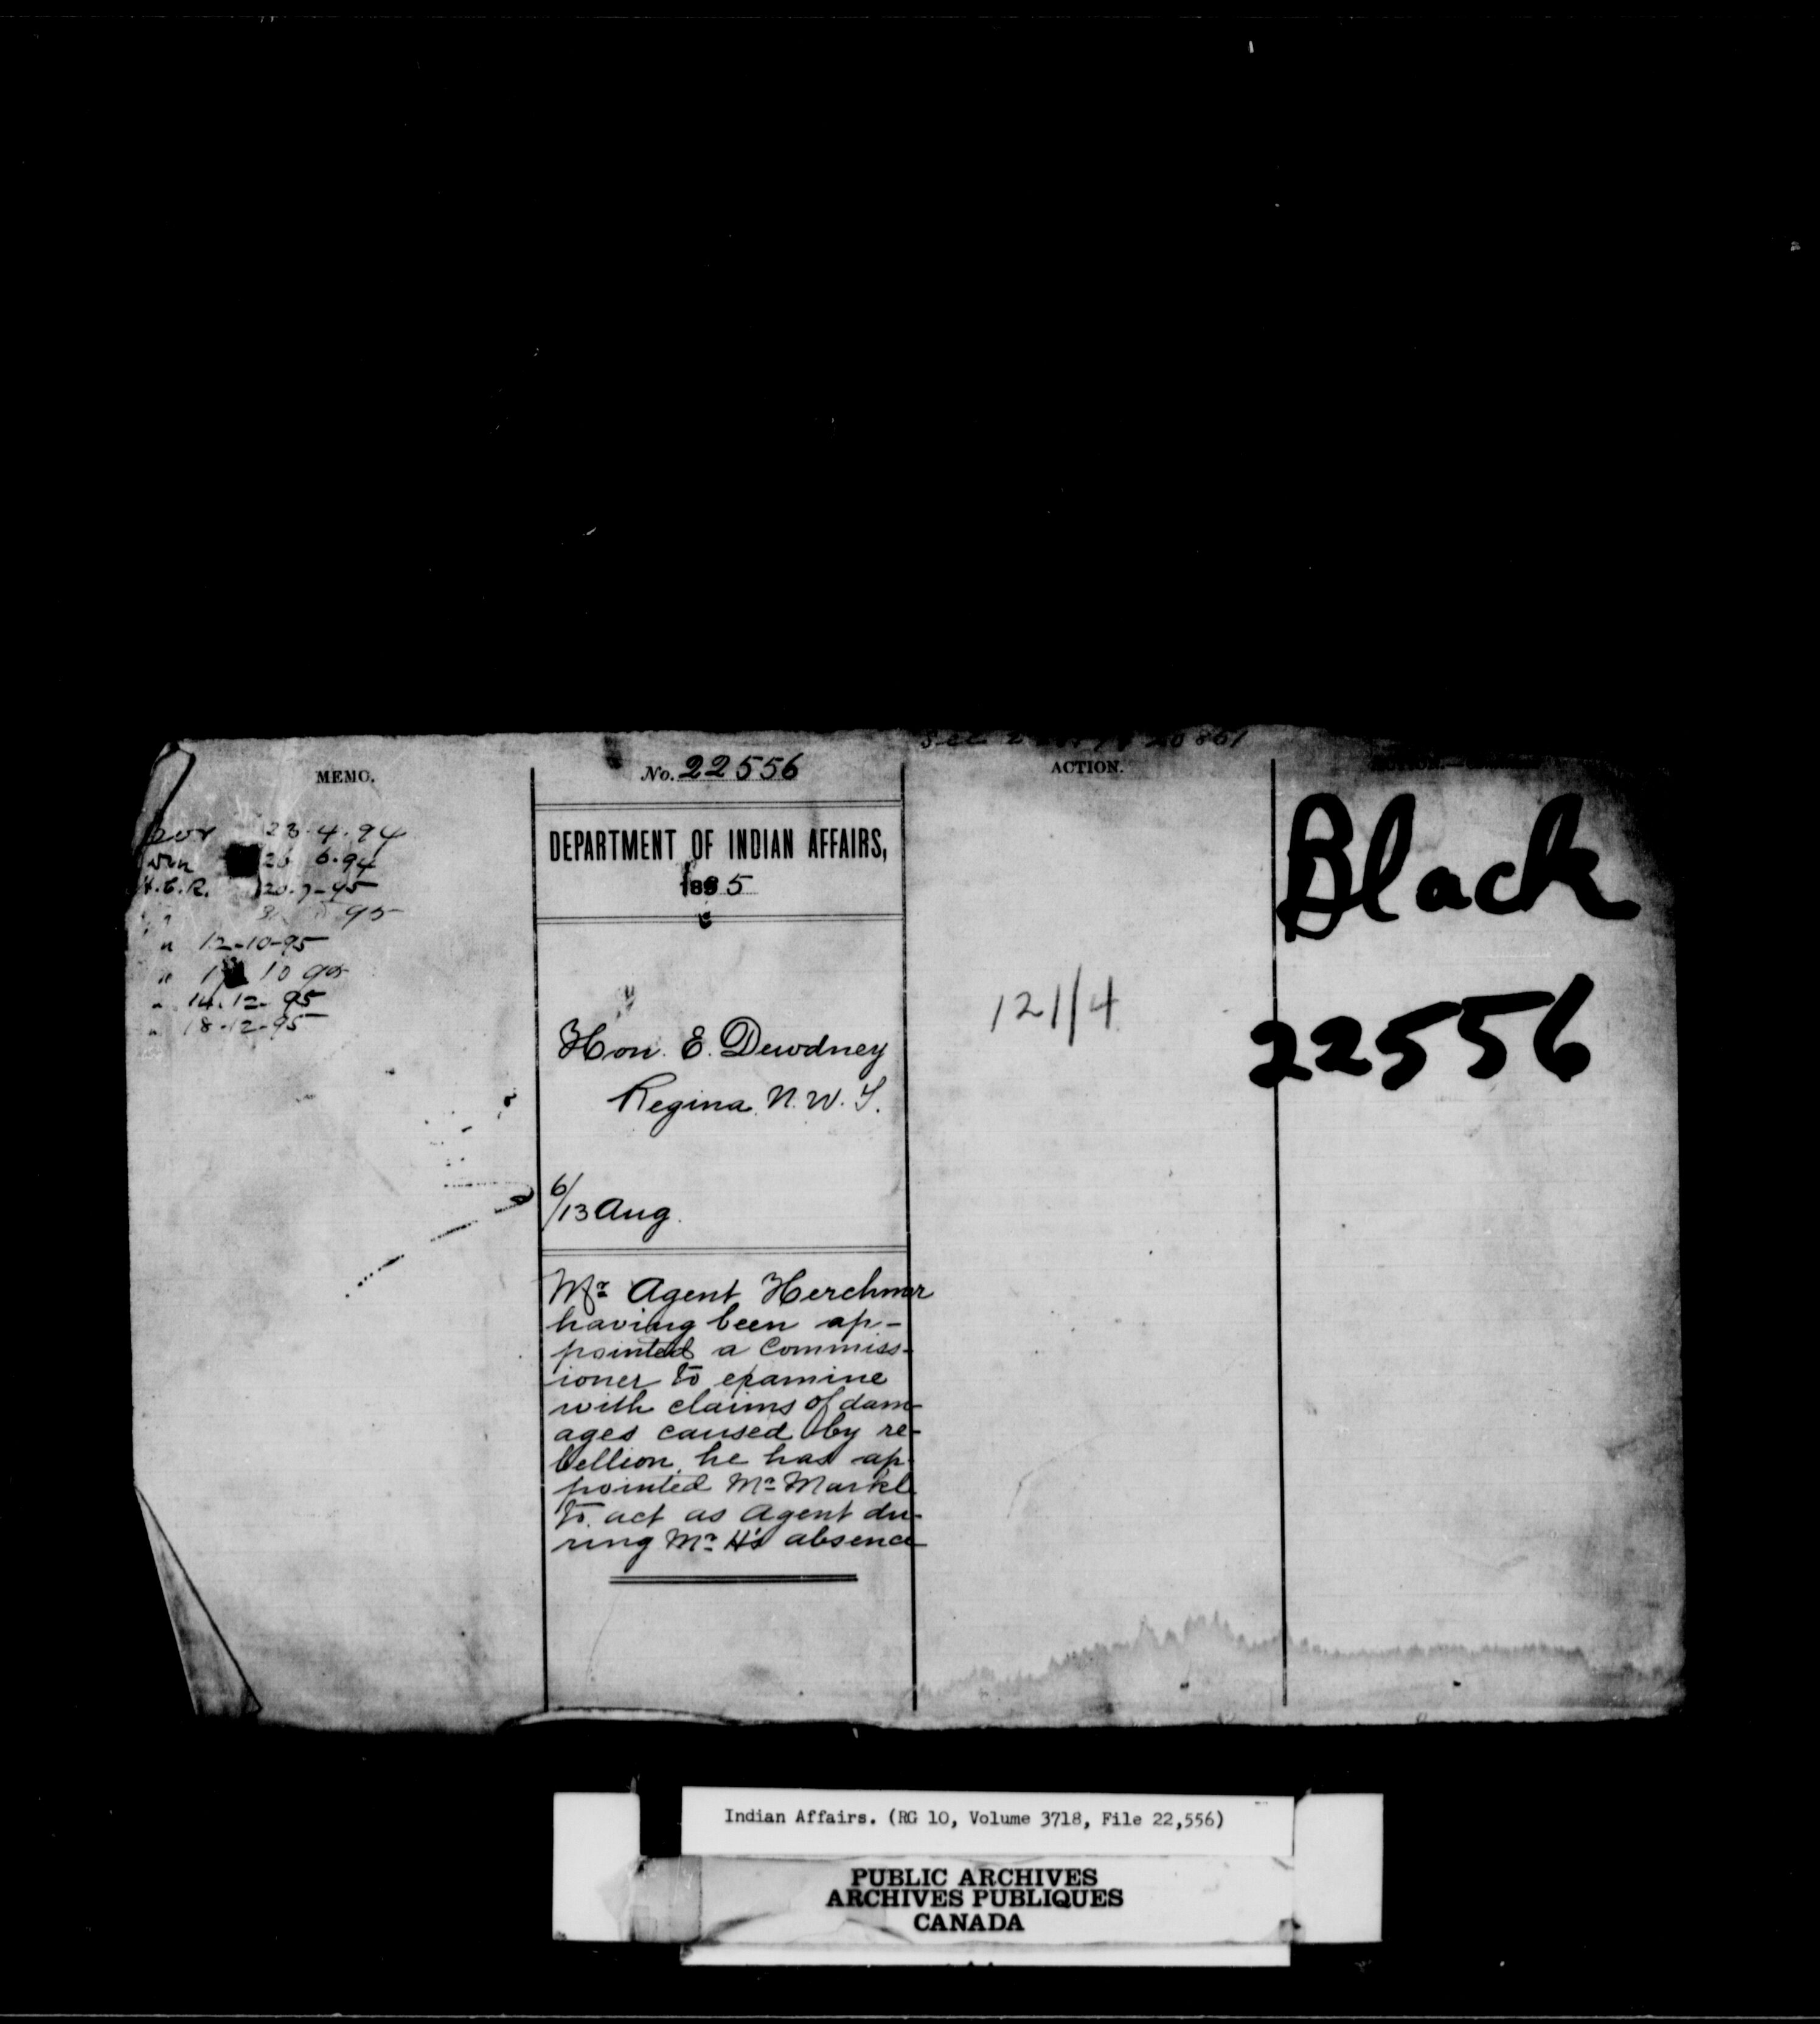 MEMO.
23.4.94
26 6.94
H.C.R. 20.7-95
95
" 12-10-95
" 10 95
" 14.12-95
" 18-12-95
No. 22556
DEPARTMENT OF INDIAN AFFAIRS,
1885
Hon. E. Dewdney
Regina N.W.T.
6/13 Aug.
Mr Agent Herchmer
having been ap-
pointed a Commiss-
ioner to examine
with claims of dam-
ages caused by re-
bellion, he has ap-
pointed Mr Markle
to act as Agent du-
ring Mr H's absence
See
ACTION.
121/4
Black
22556
Indian Affairs. (RG 10, Volume 3718, File 22,556)
PUBLIC ARCHIVES
ARCHIVES PUBLIQUES
CANADA